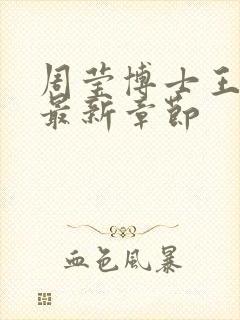 周莹博士王
最新章节
血色风暴